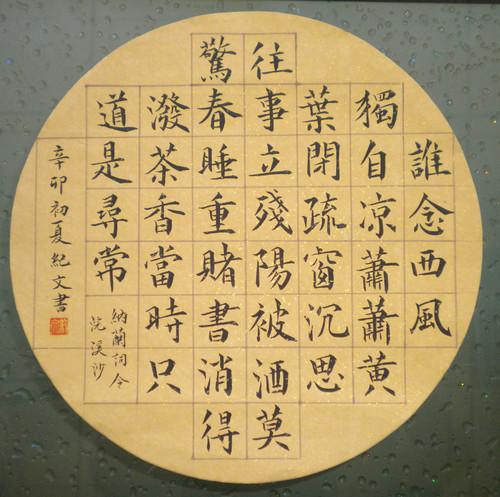 誰念西風
獨自凉蕭蕭黃
葉閉疏窗沉思
往事立殘陽被酒莫
驚春睡重賭書消得
潑茶香當時只
道是尋常
納蘭詞令
浣溪沙
辛卯初夏紀文書